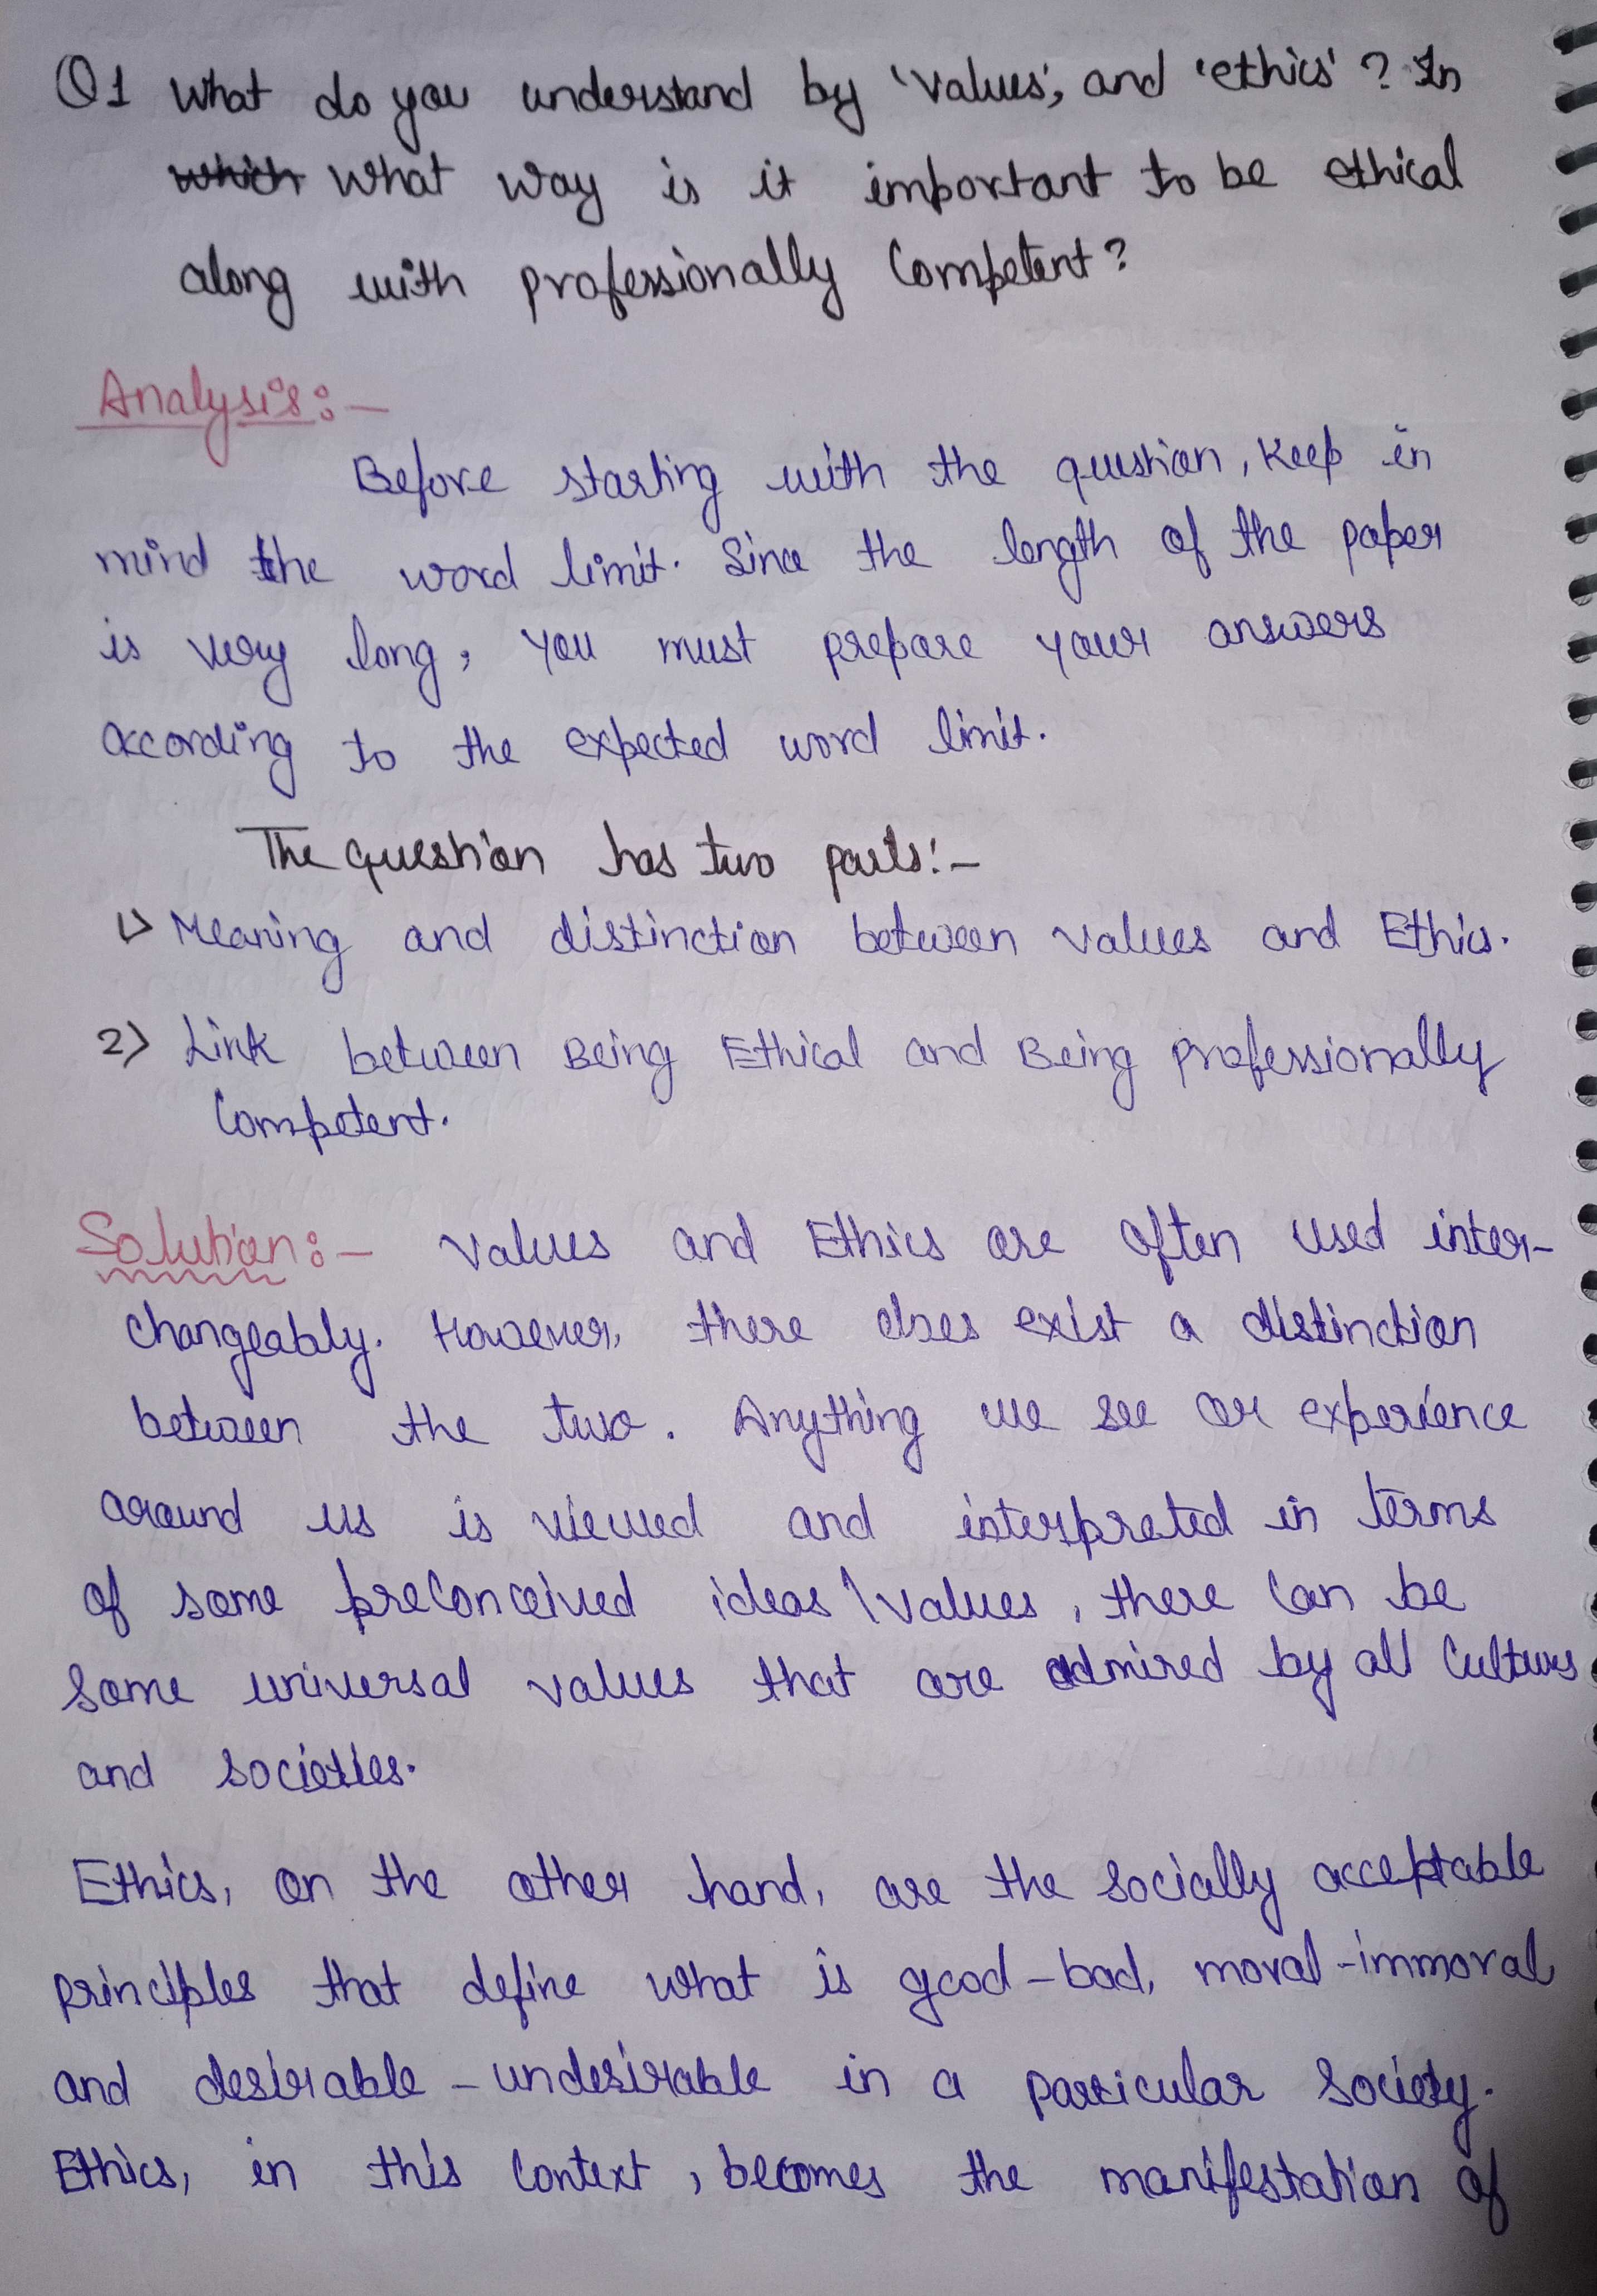 Q1 What do you understand by 'values', and 'ethics'? In
which what way is it important to be ethical
along with professionally Competent?
Analysis:-
Before starting with the question, keep in
mind the word limit. Since the length of the paper
is very long, you must prepare your answers
according to the expected word limit.
The question has two parts:-
1) Meaning and distinction between values and Ethics.
2) Link between Being Ethical and Being professionally
Competent.
Solution:- Values and Ethics are often used inter-
changeably. However, there does exist a distinction
between the two. Anything we see or experience
around us is viewed and interpreted in terms
of some preconceived ideas\values, there can be
some universal values that are admired by all Cultures
and societies.
Ethics, on the other hand, are the socially acceptable
principles that define what is good-bad, moral-immoral
and desirable-undesirable in a particular society.
Ethics, in this context, becomes the manifestation of